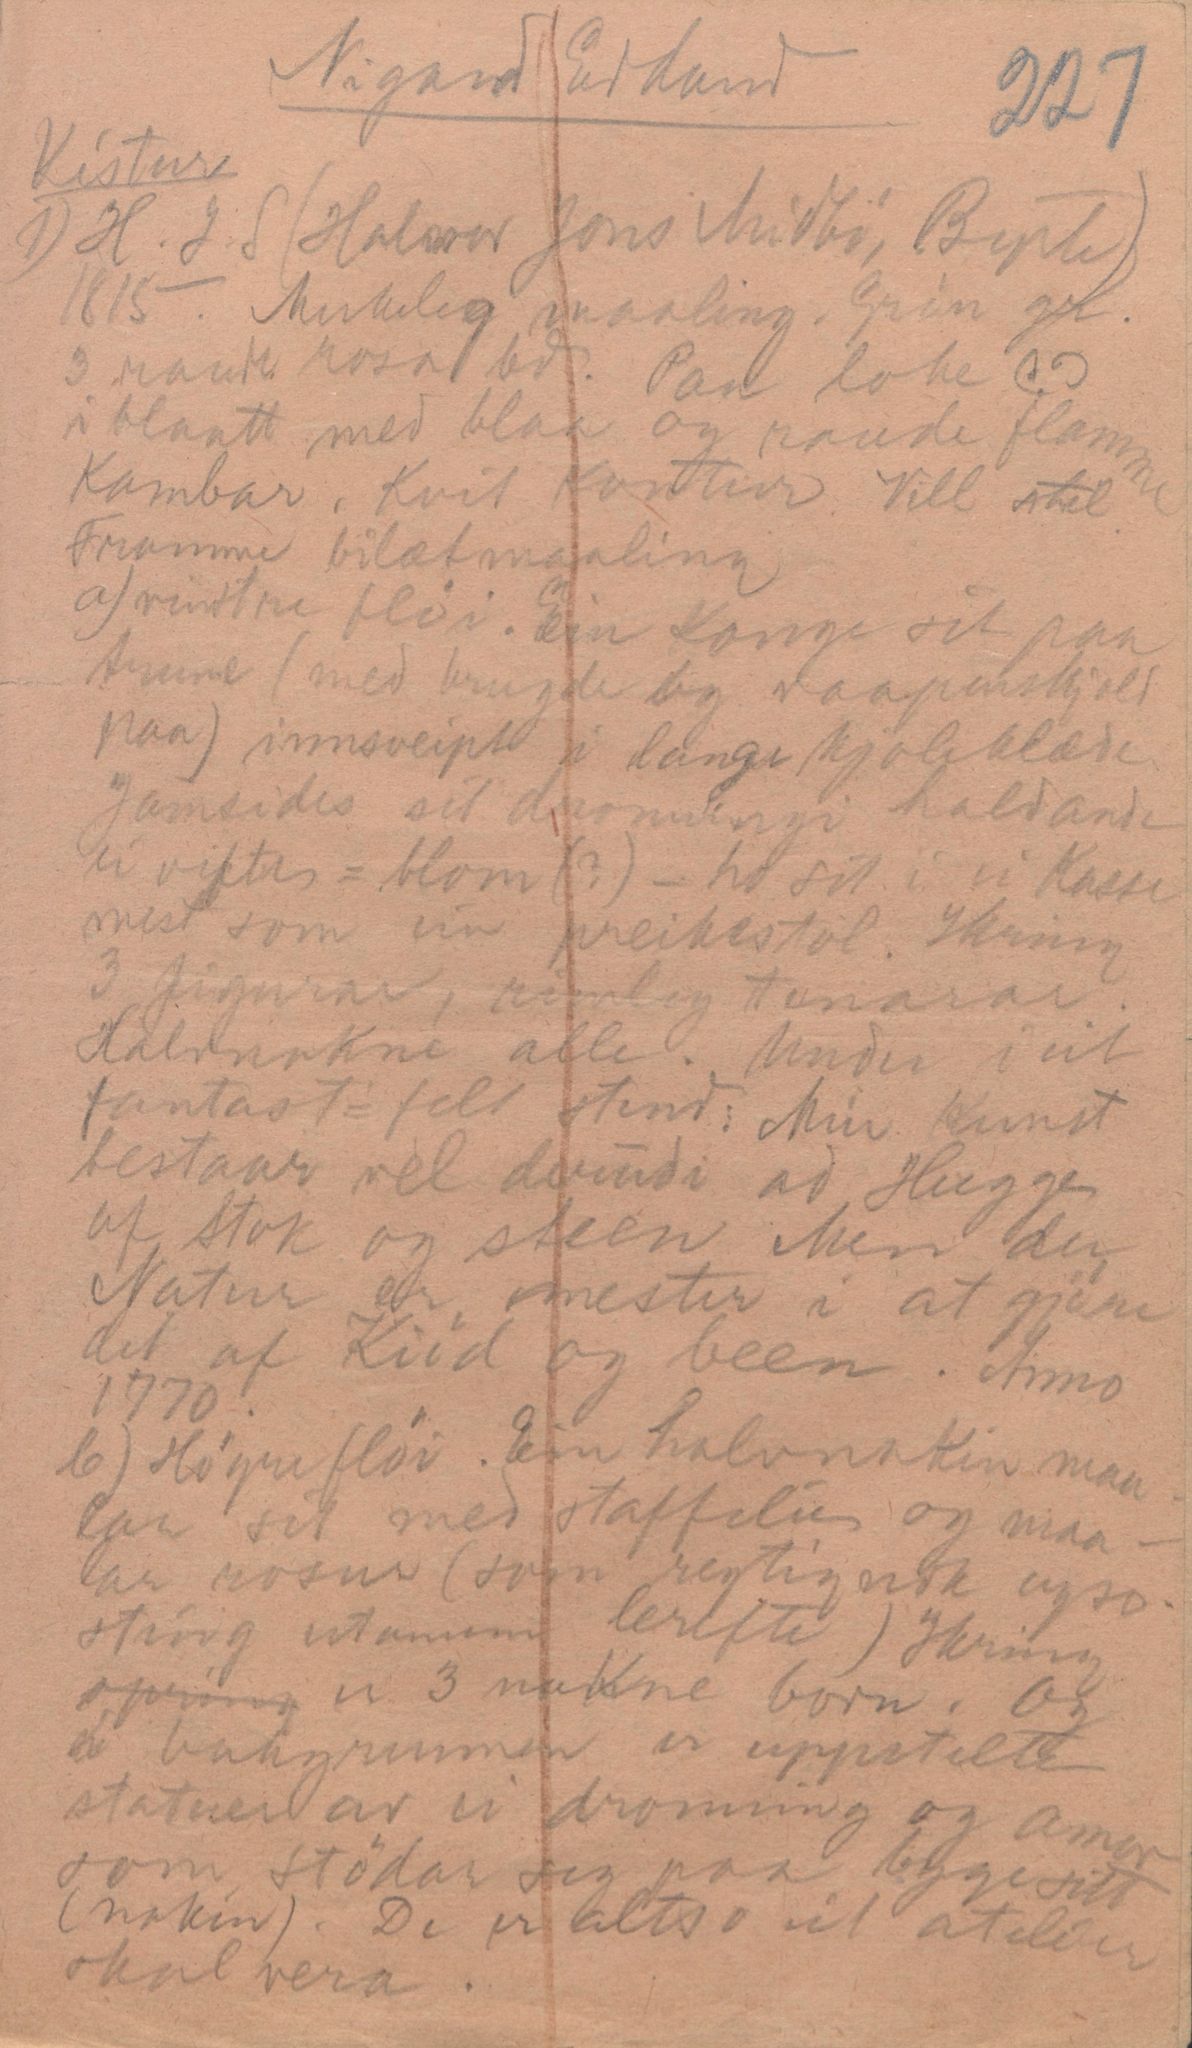 Nigard Edland
227
Kistur
1) H. J. S (Halvor Jons Midbö, Bypte)
1815. Merkeleg maaling. Grön gr.
3 raude rosa bd. Paa loke
i blaatt med blaa og raude flamme
Kambar. Kvit Kontur. Vill stil.
Framme bilætmaaling
a) vinstre flöi. Ein Konge sit paa
trune (med brugde og vaapenskjold
paa) innsveipt i lange kjoleklæde
Jamsides sit dronningi haldande
ei viftes = blom (?) - ho sit i ei Kasse
mest som ein preikestol. Ikring
3 figurar, rimeleg tenarar.
Halvnakne alle. Under i eit
fantast = felt stend: Min Kunst
bestaar vel derudi ad Hugge
af Stok og steen Men der
Natur er mester i at gjöre
det af Kiöd og been. Anno
1770.
b) Högre flöi. Ein halvnakin maa-
lar sit med staffelie og maa-
lar rosur (som regtignok ogso
utanum lerefte) Ikring
spring er 3 nakne born. Og
i bakgrunnen er uppstelte
statuer av ei dronning og amor
som stödar seg paa bygesitt
(nakin). De er altso eit atelier
skal vera.